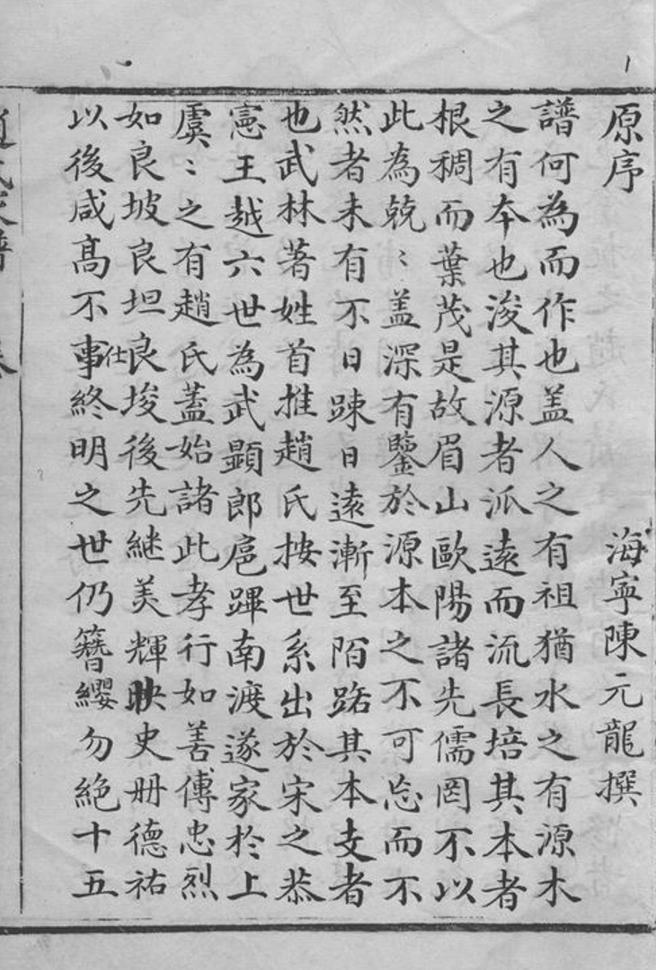 原序
海寧陳元龍撰
譜何為而作也盖人之有祖猶水之有源木
之有夲也浚其源者派逺而流長培其本者
根稠而葉茂是故眉山歐陽諸先儒罔不以
此為兢〻盖深有鑒於源本之不可忘而不
然者未有不日踈日逺漸至陌路其本支者
也武林著姓首推趙氏按世系出於宋之恭
憲王越六世為武顯郎扈蹕南渡遂家於上
虞〻之有趙氏葢始諸此孝行如善傅忠烈
如良坡良坦良埈後先継美輝映史册德祐
以後咸髙不事仕終明之世仍簪纓勿絶十五
趙氏家譜 卷